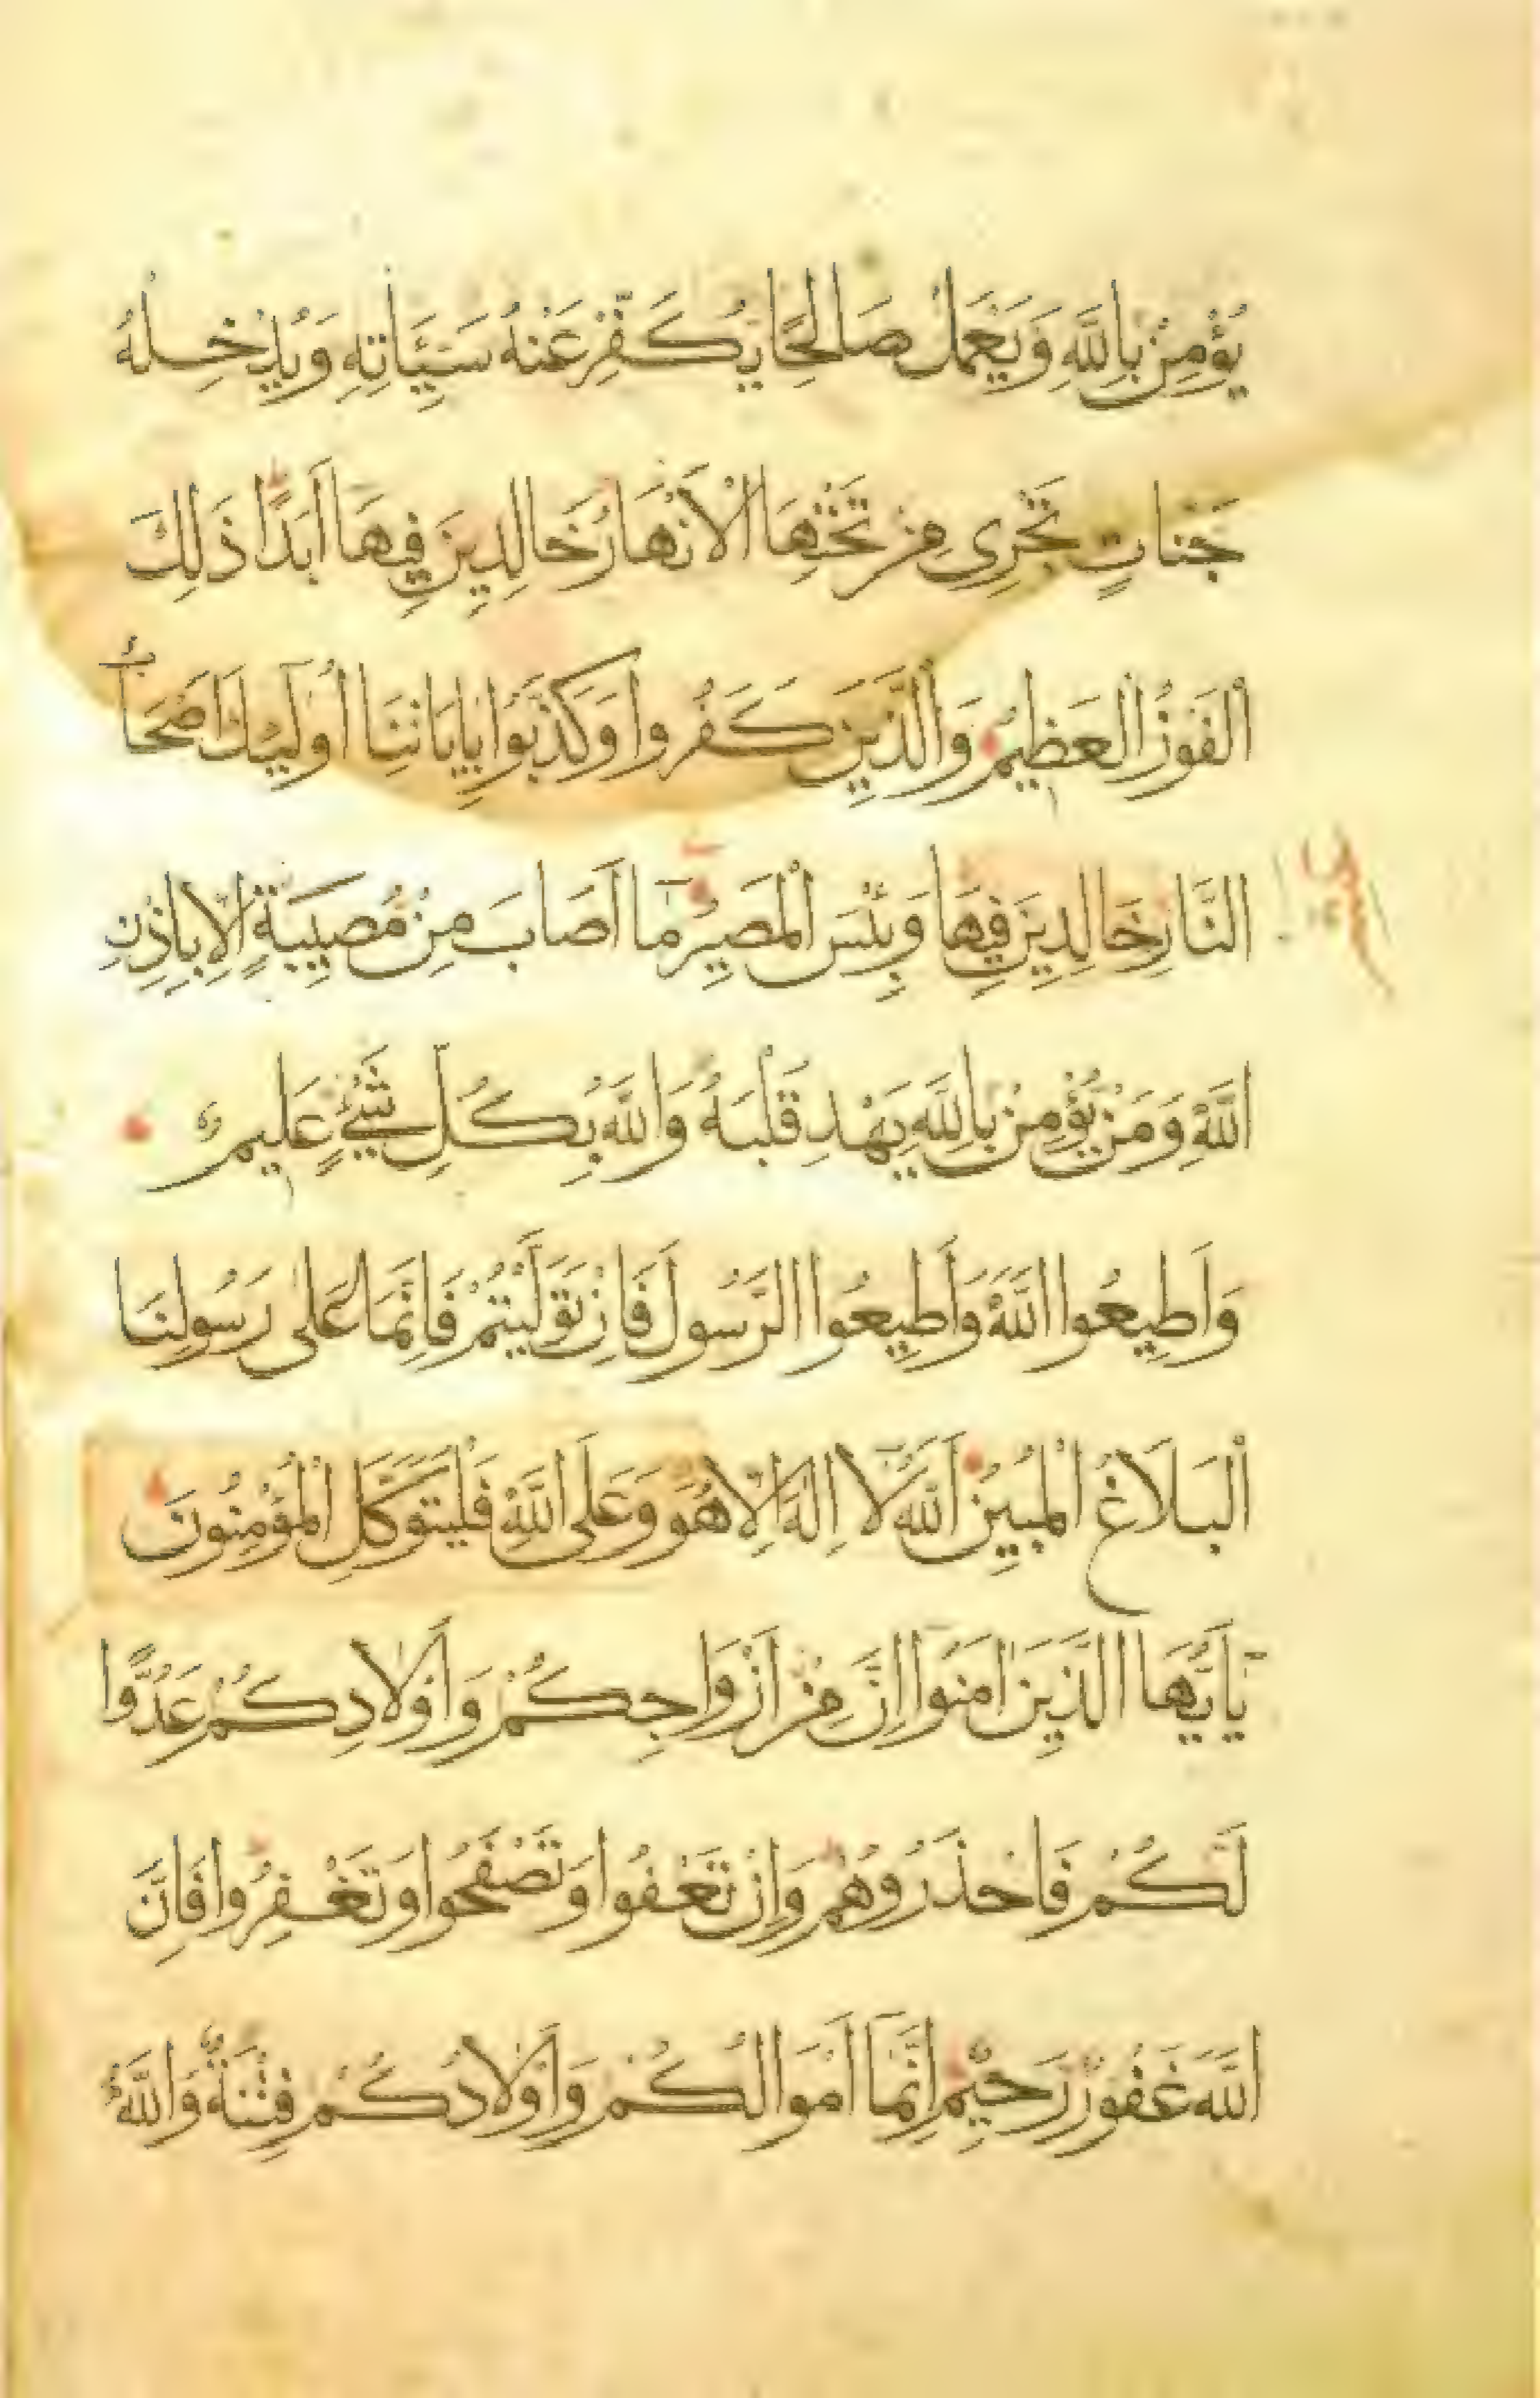 يُؤْمِنْ بِاللَّهِ وَيَعْمَلْ صَالِحًا يُكَفِّرْ عَنْهُ سَيِّـَٔاتِهِ وَيُدْخِلْهُ
جَنَّاتٍ تَجْرِي مِنْ تَحْتِهَا الْأَنْهَارُ خَالِدِينَ فِيهَا أَبَدًا ذَلِكَ
الْفَوْزُ الْعَظِيمُ وَالَّذِينَ كَفَرُوا وَكَذَّبُوا بِاٰيَاتِنَا أُولَٰئِكَ اَصْحَابُ
النَّارِ خَالِدِينَ فِيهَا وَبِئْسَ الْمَصِيرُ مَا أَصَابَ مِنْ مُصِيبَةٍ إِلَّا بِإِذْنِ
اللَّهِ وَمَنْ يُؤْمِنْ بِاللَّهِ يَهْدِ قَلْبَهُ وَاللَّهُ بِكُلِّ شَيْءٍ عَلِيمٌ
وَأَطِيعُوا اللَّهَ وَأَطِيعُوا الرَّسُولَ فَإِنْ تَوَلَّيْتُمْ فَإِنَّمَا عَلَى رَسُولِنَا
الْبَلَاغُ الْمُبِينُ اَللَّهُ لَا إِلٰهَ إِلَّا هُوَ وَعَلَى اللَّهِ فَلْيَتَوَكَّلِ الْمُؤْمِنُونَ
يَاأَيُّهَا الَّذِينَ اٰمَنُوا إِنَّ مِنْ أَزْوَاجِكُمْ وَأَوْلَادِكُمْ عَدُوًّا
لَكُمْ فَاحْذَرُوهُمْ وَإِنْ تَعْفُوا وَتَصْفَحُوا وَتَغْفِرُوا فَإِنَّ
اللَّهَ غَفُورٌ رَحِيمٌ إِنَّمَا أَمْوَالُكُمْ وَأَوْلَادُكُمْ فِتْنَةٌ وَاللَّهُ